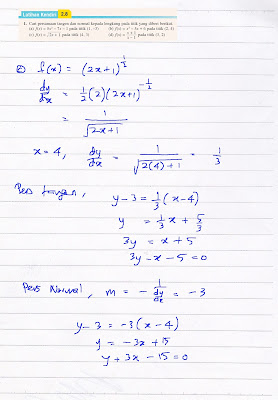 Latihan Kendiri 2.8
1. Cari persamaan tangen dan normal kepada lengkung pada titik yang diberi berikut.
(a) f(x) = 5x² − 7x − 1 pada titik (1, −3) (b) f(x) = x³ − 5x + 6 pada titik (2, 4)
(c) f(x) = √2x + 1 pada titik (4, 3) (d) pada titik (3, 2)
f(x) = (2x+1)^½
dy/dx = ½(2)(2x+1)^-½
= 1/√2x+1
x=4, dy/dx = 1/√2(4)+1 = 1/3
Pers tangen,
y−3 = 1/3(x−4)
y = 1/3 x + 5/3
3y = x+5
3y−x−5=0
Pers Normal, m = − 1/(dy/dx) = −3
y−3 = −3(x−4)
y = −3x+15
y+3x−15=0